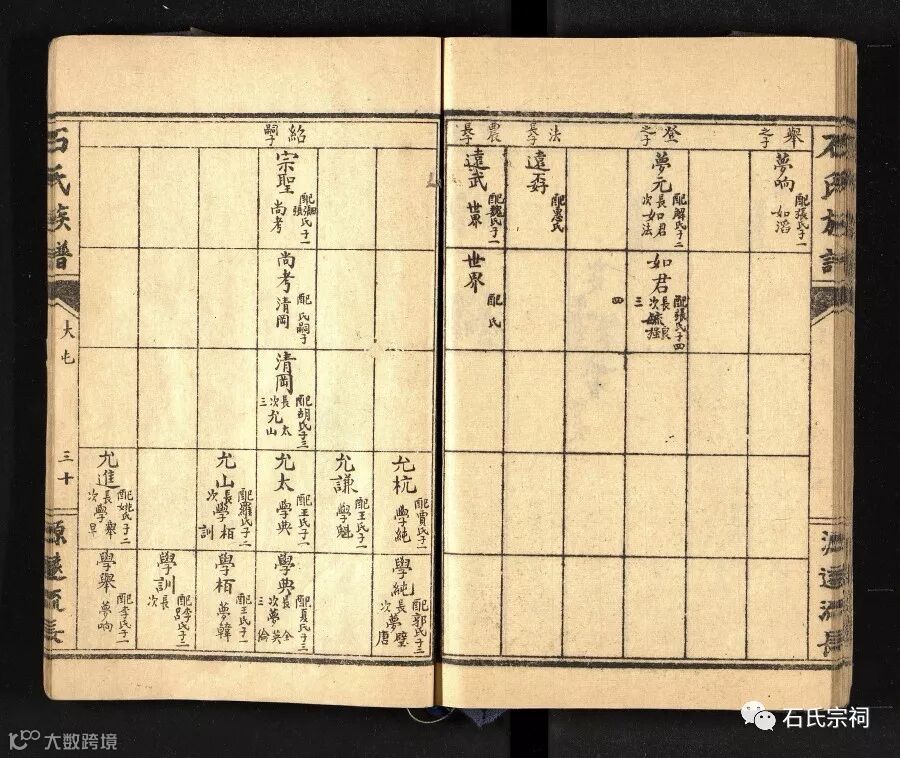 石氏族譜
源遠流長
舉之子
登之子
法長子
農長子
夢响
配張氏子一
如滔
夢元
配解氏子二
長如君
次如法
遠孬
配惠氏
遠武
配魏氏子一
世界
如君
配張氏子四
長 良
三
四
世界
配 氏
紹嗣子
宗聖
尚考
尚考
配 氏嗣子
清岡
清岡
配胡氏子三
長 太
次允
三 山
允杭
配賈氏子一
學純
允謙
配王氏子一
學魁
允太
配王氏子一
學典
允山
配羅氏子二
長學栢
次 訓
允進
配姚氏子二
長 舉
次學早
學純
配郭氏子二
長夢璧
次 唐
學典
配夏氏子三
長 全
次夢吳
三 倫
學栢
配王氏子一
夢韓
學訓
配李氏子二
呂
長
次
學舉
配李氏子一
夢响
石氏族譜
大屯
三十
源遠流長
石氏宗祠
大数跨境